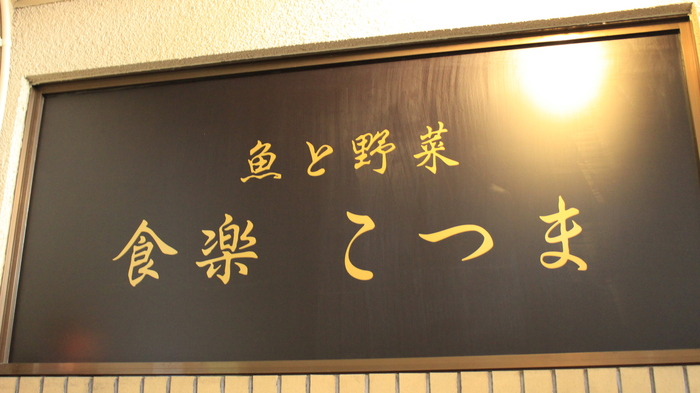 魚と野菜
食楽 こつま